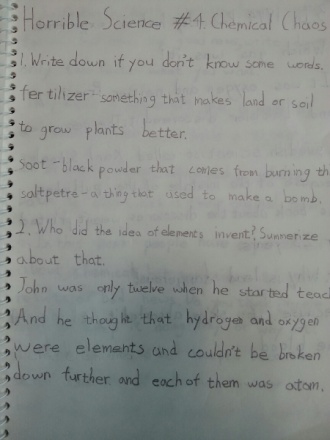 Horrible Science #4. Chemical Chaos
1. Write down if you don't know some words.
fertilizer - something that makes land or soil
to grow plants better.
Soot - black powder that comes from burning th
saltpetre - a thing that used to make a bomb.
2. Who did the idea of elements invent? Summerize
about that.
John was only twelve when he started teac
And he thought that hydrogen and oxygen
were elements and couldn't be broken
down further and each of them was atom.